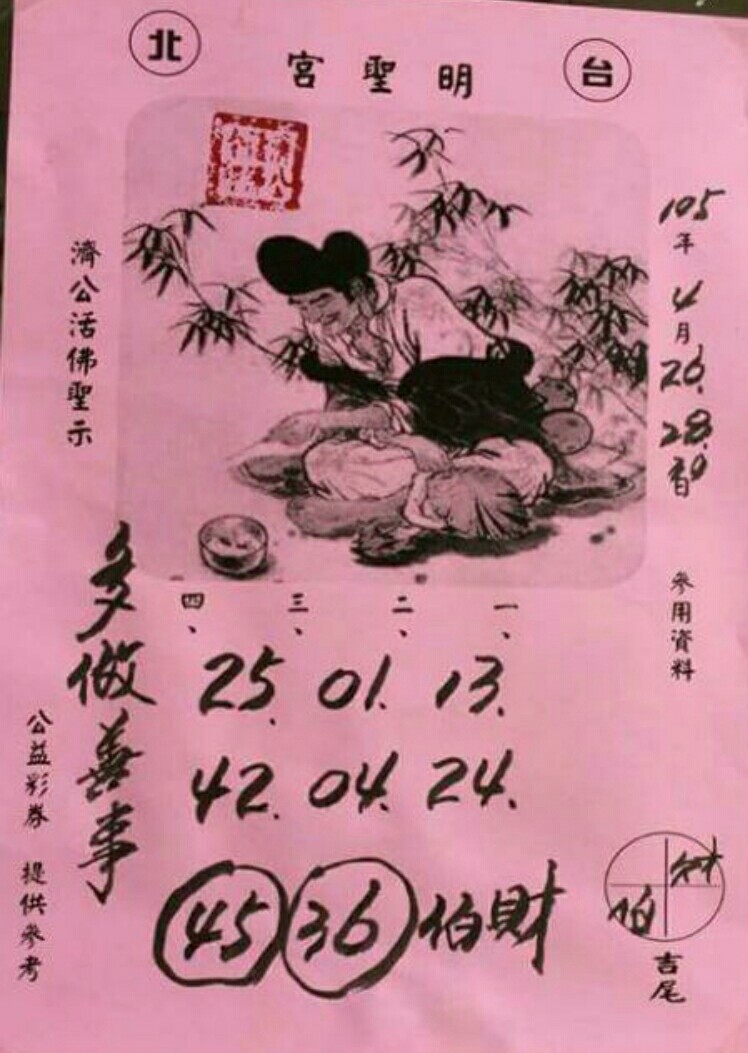 台北
明聖宮
105年4月26.28.30日
參用資料
濟公活佛聖示
一、
二、
三、
四、
25. 01. 13.
42. 04. 24.
45 36 伯財
多做善事
財
伯
吉尾
公益彩券 提供參考